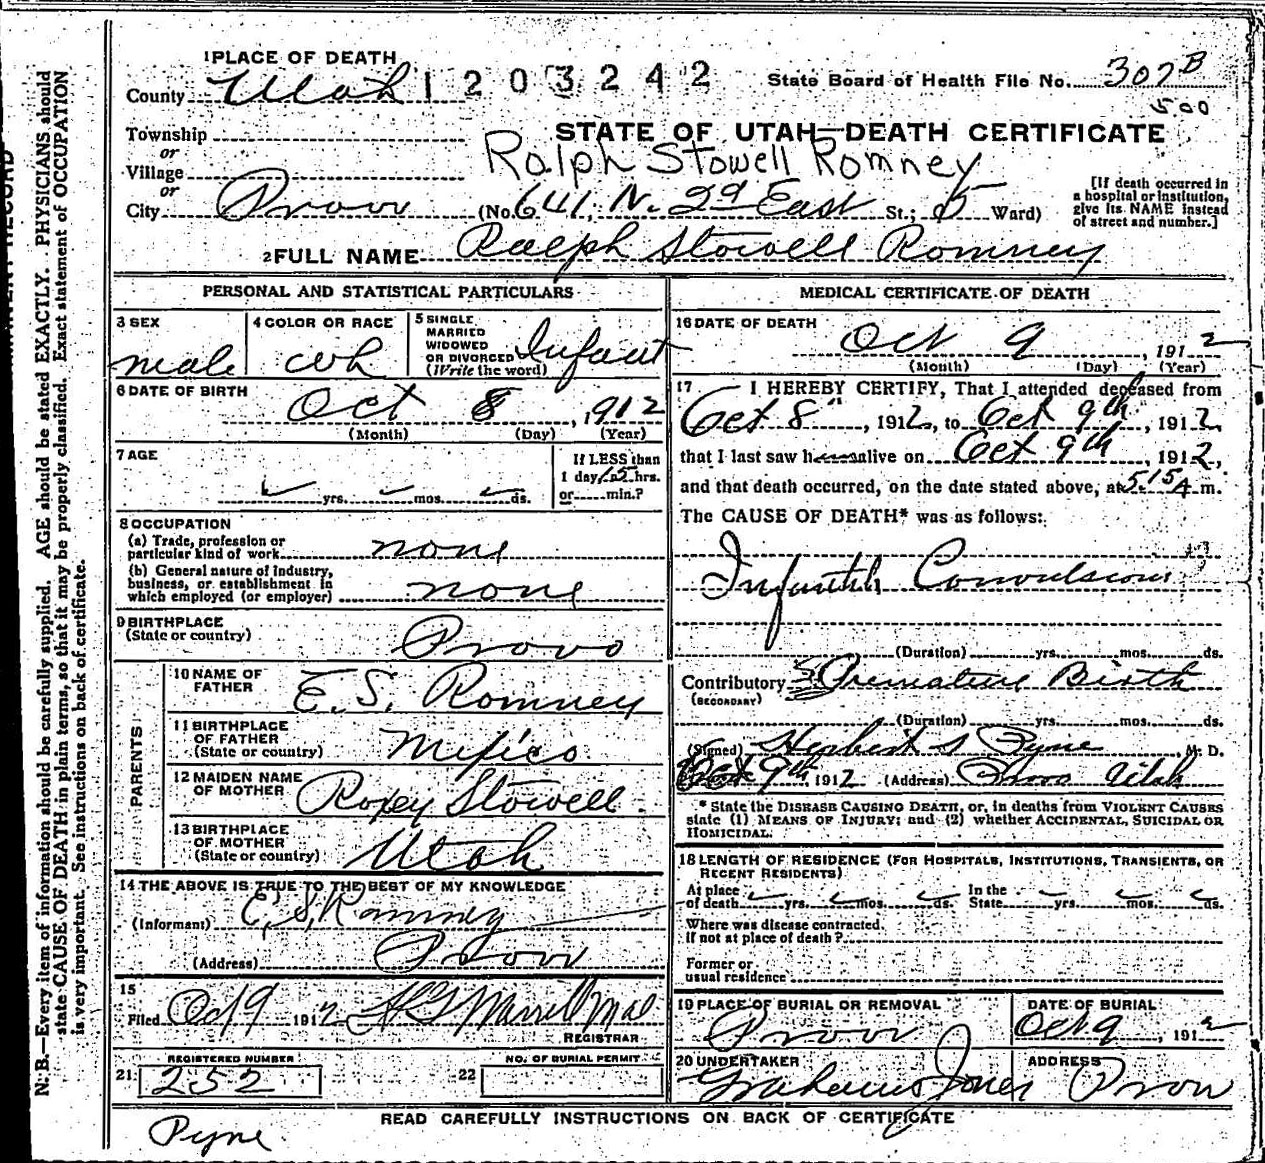 1 PLACE OF DEATH
County Utah 1 2 0 3 2 4 2 State Board of Health File No. 307 B
500
Township
or
Village
or
City Provo
STATE OF UTAH—DEATH CERTIFICATE
Ralph Stowell Romney
(No. 641, N. 2d East St.; 5 Ward)
[If death occurred in
a hospital or institution,
give its NAME instead
of street and number.]
2 FULL NAME Ralph Stowell Romney
PERSONAL AND STATISTICAL PARTICULARS
3 SEX
male
4 COLOR OR RACE
wh
5 SINGLE
MARRIED
WIDOWED
OR DIVORCED
(Write the word)
Infant
6 DATE OF BIRTH
Oct 8, 1912
(Month) (Day) (Year)
7 AGE
yrs. mos. ds.
If LESS than
1 day 15 hrs.
or min.?
8 OCCUPATION
(a) Trade, profession or
particular kind of work none
(b) General nature of industry,
business, or establishment in
which employed (or employer) none
9 BIRTHPLACE
(State or country) Provo
PARENTS
10 NAME OF
FATHER E. S. Romney
11 BIRTHPLACE
OF FATHER
(State or country) Mexico
12 MAIDEN NAME
OF MOTHER Roxey Stowell
13 BIRTHPLACE
OF MOTHER
(State or country) Utah
14 THE ABOVE IS TRUE TO THE BEST OF MY KNOWLEDGE
(Informant) E. S. Romney
(Address) Provo
15
Filed Oct 9 1912 Merrill
REGISTRAR
REGISTERED NUMBER
21 252
NO. OF BURIAL PERMIT
22
MEDICAL CERTIFICATE OF DEATH
16 DATE OF DEATH
Oct 9, 1912
(Month) (Day) (Year)
17 I HEREBY CERTIFY, That I attended deceased from
Oct 8", 1912, to Oct 9th, 1912,
that I last saw h alive on Oct 9th, 1912,
and that death occurred, on the date stated above, at 5.15 A m.
The CAUSE OF DEATH* was as follows:
Infantile Convulsions
(Duration) yrs. mos. ds.
Contributory Premature Birth
(SECONDARY)
(Duration) yrs. mos. ds.
(Signed) Herbert S Pyne M. D.
Oct 9th 1912 (Address) Provo Utah
* State the DISEASE CAUSING DEATH, or, in deaths from VIOLENT CAUSES
state (1) MEANS OF INJURY; and (2) whether ACCIDENTAL, SUICIDAL OR
HOMICIDAL.
18 LENGTH OF RESIDENCE (FOR HOSPITALS, INSTITUTIONS, TRANSIENTS, OR
RECENT RESIDENTS)
At place
of death yrs. mos. ds. In the
State yrs. mos. ds.
Where was disease contracted,
if not at place of death?
Former or
usual residence
19 PLACE OF BURIAL OR REMOVAL
Provo
DATE OF BURIAL
Oct 9, 1912
20 UNDERTAKER
Jones
ADDRESS
Provo
READ CAREFULLY INSTRUCTIONS ON BACK OF CERTIFICATE
Pyne
N. B.—Every item of information should be carefully supplied. AGE should be stated EXACTLY. PHYSICIANS should
state CAUSE OF DEATH in plain terms, so that it may be properly classified. Exact statement of OCCUPATION
is very important. See instructions on back of certificate.